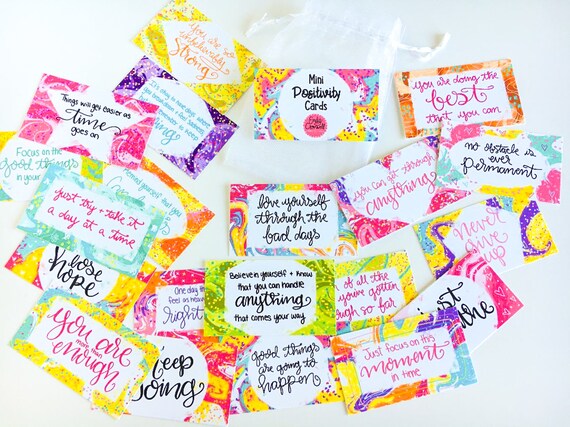 you are so
unbelievably
strong
Mini
Positivity
Cards
you are doing the
best
that you can
Things will get easier as
time
goes on
it's okay to have days where
things
no obstacle is
ever
permanent
Focus on the
good things
in your
remind yourself that you
you can get through
anything
just try + take it
a day at a time
love yourself
through the
bad days
never
give
up
lose
hope
One day th
feel as heav
right
Believe in yourself + know
that you can handle
anything
that comes your way
of all the
you've gotten
ugh so far
just
the
you are
more than
enough
keep
going
good things
are going to
happen
Just focus on this
moment
in time